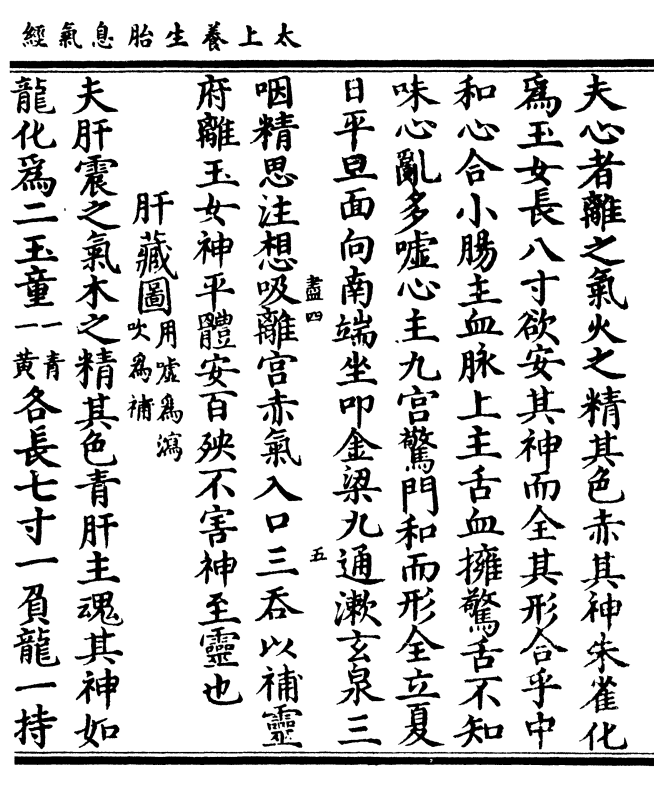 太上養生胎息氣經
夫心者離之氣火之精其色赤其神朱雀化
爲玉女長八寸欲安其神而全其形合乎中
和心合小腸主血脉上主舌血擁驚舌不知
味心亂多噓心主九宮驚門和而形全立夏
日平旦面向南端坐叩金梁九通漱玄泉三
盡四
五
咽精思注想吸離宮赤氣入口三吞以補靈
府離玉女神平體安百殃不害神至靈也
肝藏圖用噓爲瀉吹爲補
夫肝震之氣木之精其色青肝主魂其神如
龍化爲二玉童一青一黄各長七寸一負龍一持